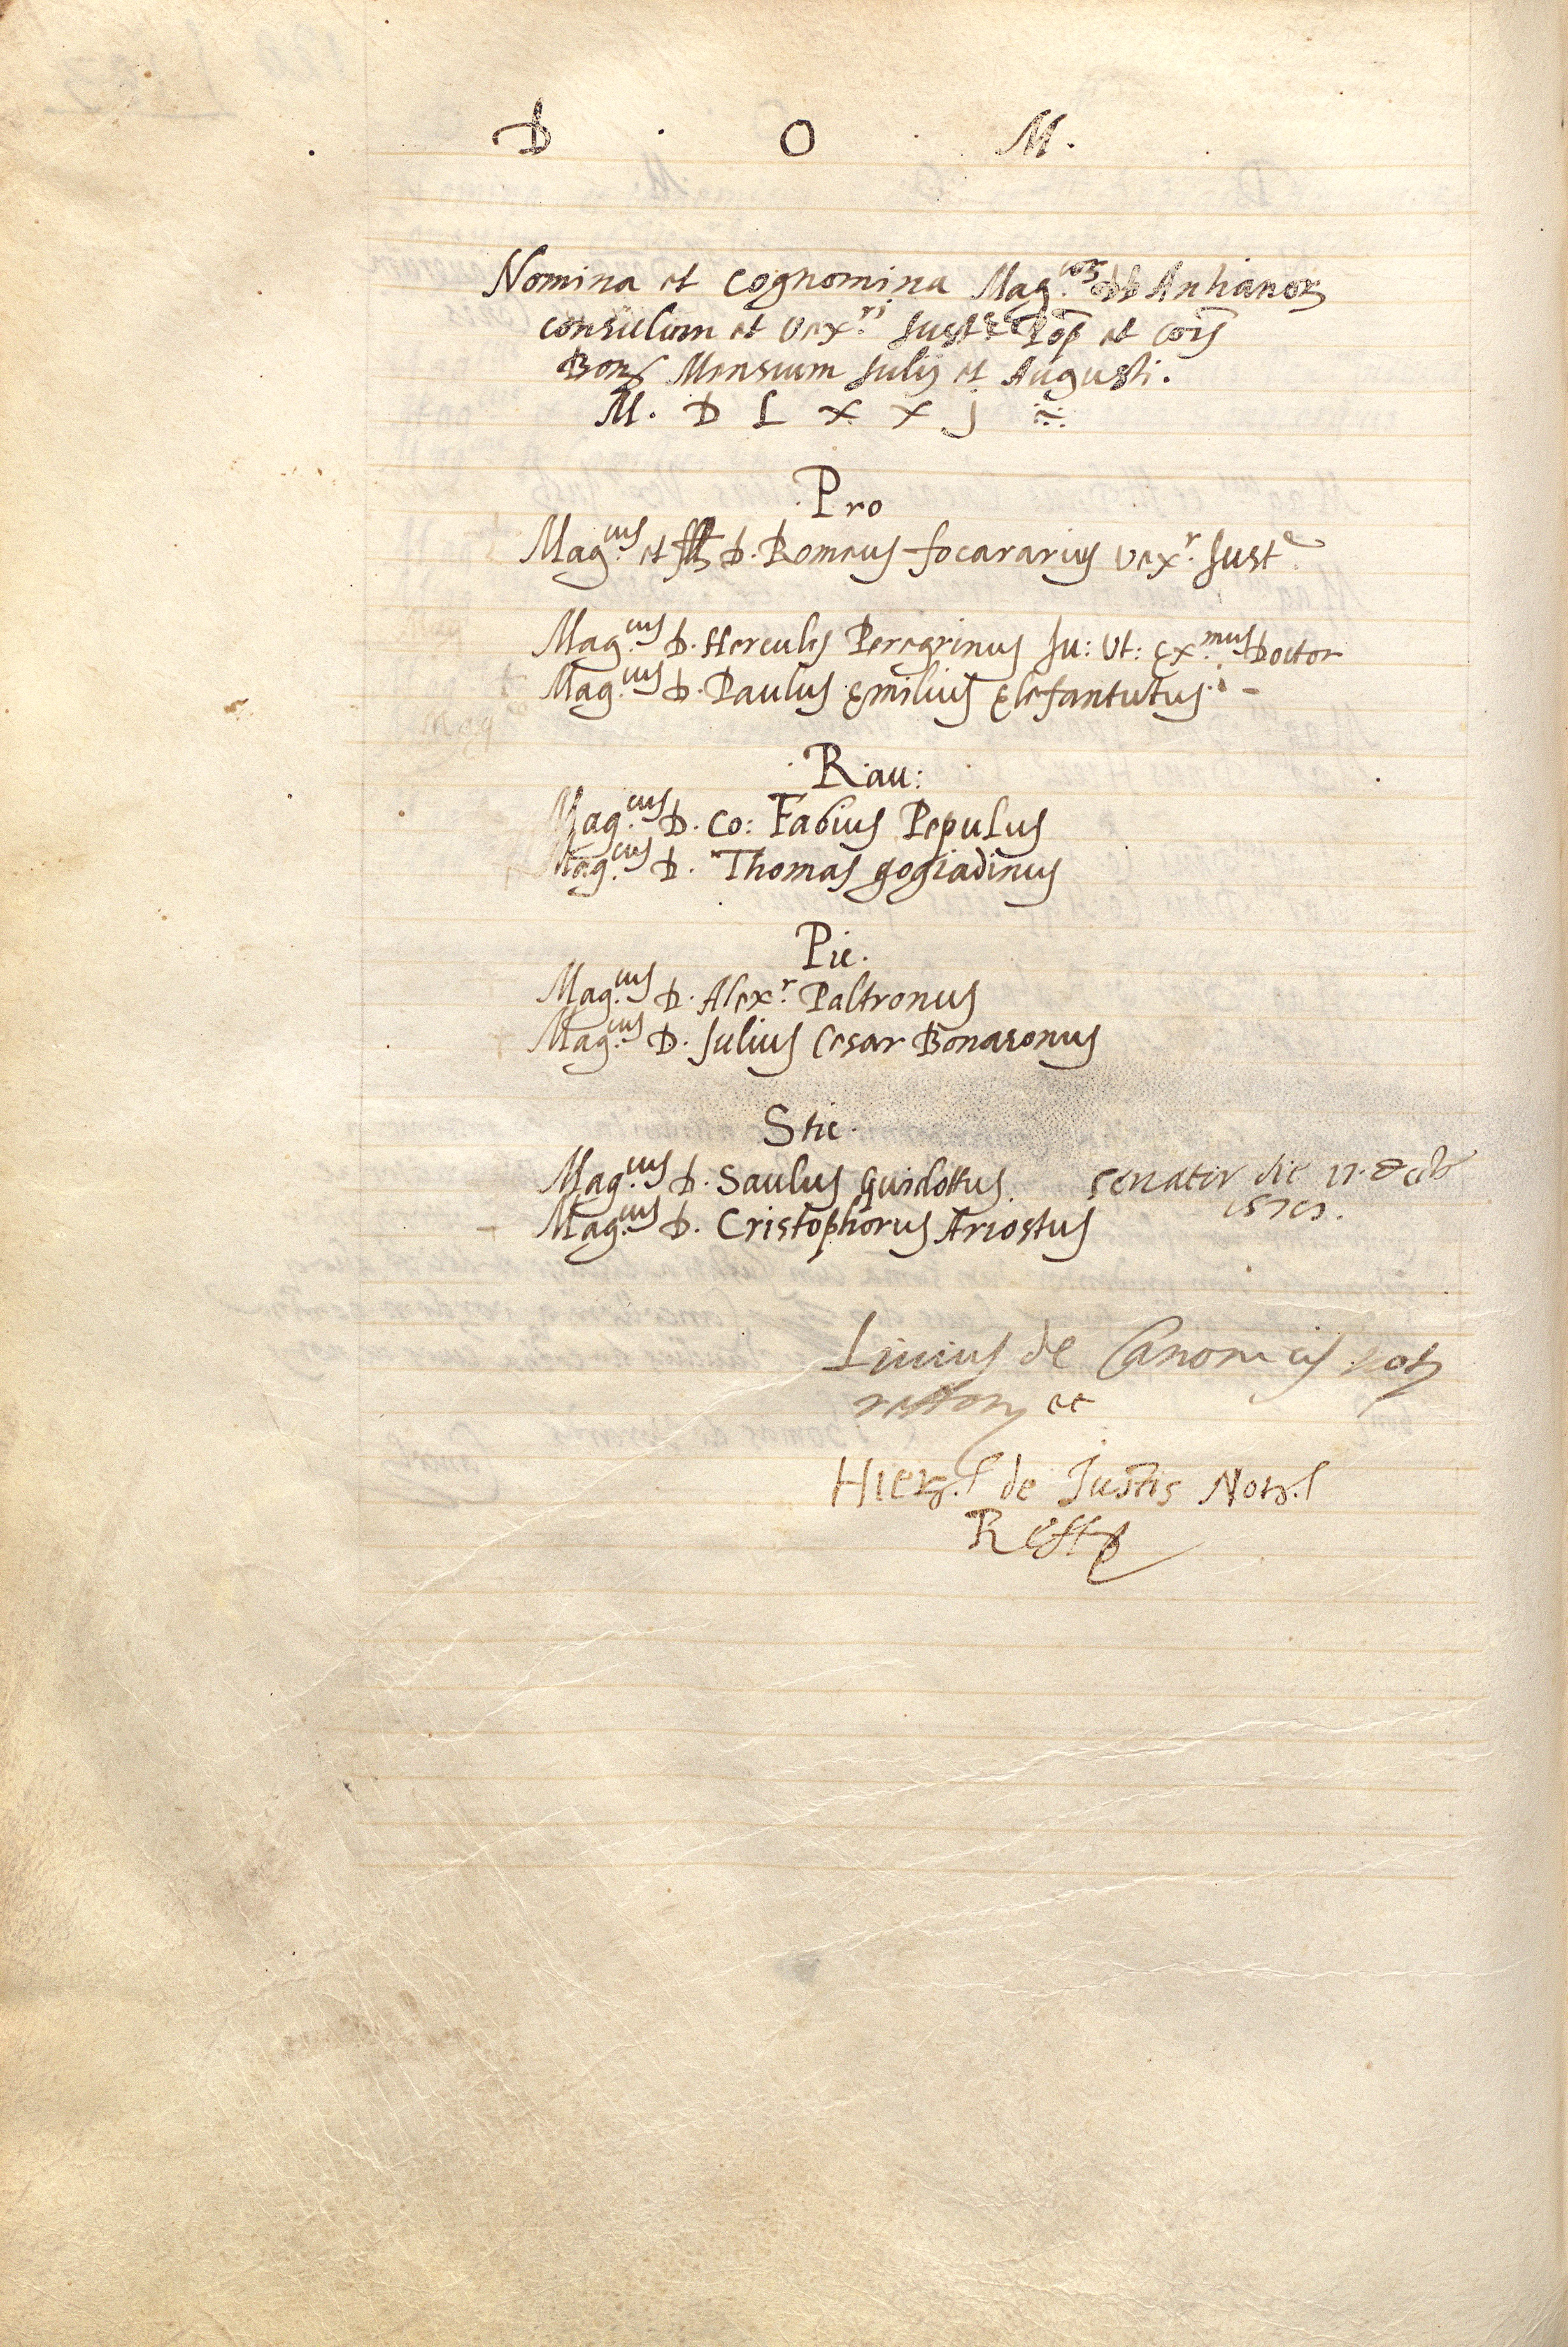 D . O . M.
Nomina et cognomina Mag.corum DD Antianorum
consulum et vex.ri Just.e Pop et cois
Bon Mensium Julij et Augusti.
M. D L X X j
Pro
Mag.cus et Ill D. Romeus focararius vex.r Just.e
Mag.cus D. Hercules Peregrinus Ju: Ut: Ex.mus Doctor
Mag.cus D. Paulus Emilius Elefantutus
Rau:
Mag.cus D. Co: Fabius Pepulus
Mag.cus D. Thomas gogiadinus
Pie.
Mag.cus D. Alex.r Paltronus
Mag.cus D. Julius Cesar Bonasonus
Stie.
Mag.cus D. Saulus Guidottus. senator die 17.
Mag.cus D. Cristophorus Ariostus
Livius de Canonicis not
et
Hier. de Justis Not.